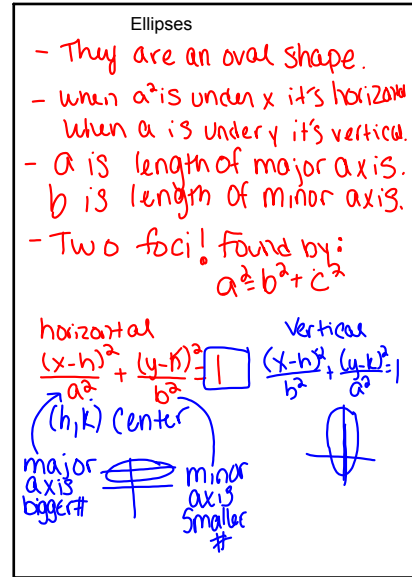 Ellipses
- They are an oval shape.
- when a² is under x it's horizontal
when a is under y it's vertical.
- a is length of major axis.
b is length of minor axis.
- Two foci! Found by:
a² = b² + c²
horizontal
(x-h)²/a² + (y-k)²/b² = 1
vertical
(x-h)²/b² + (y-k)²/a² = 1
(h,k) center
major
axis
bigger #
minor
axis
smaller
#